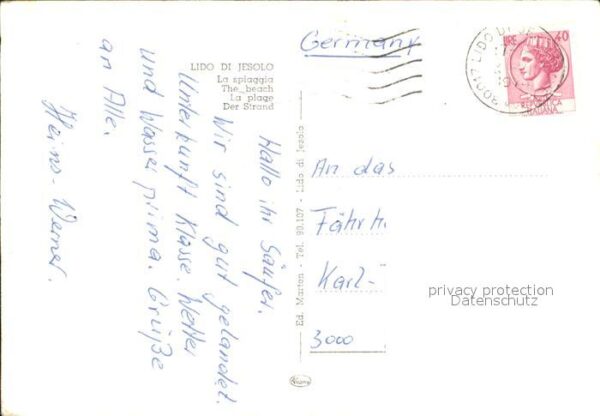 LIDO DI JESOLO
La spiaggia
The beach
La plage
Der Strand
Germany
LIRE 40
REPUBBLICA
ITALIANA
30017 LIDO DI
Hallo ihr Säufer.
Wir sind gut gelandet.
Unterkunft Klasse. Wetter
und Wasser prima. Grüße
an Alle.
Heino-Werner.
Ed. Marton - Tel. 90.107 - Lido di Jesolo
An das
Fährh.
Karl-
3000
privacy protection
Datenschutz